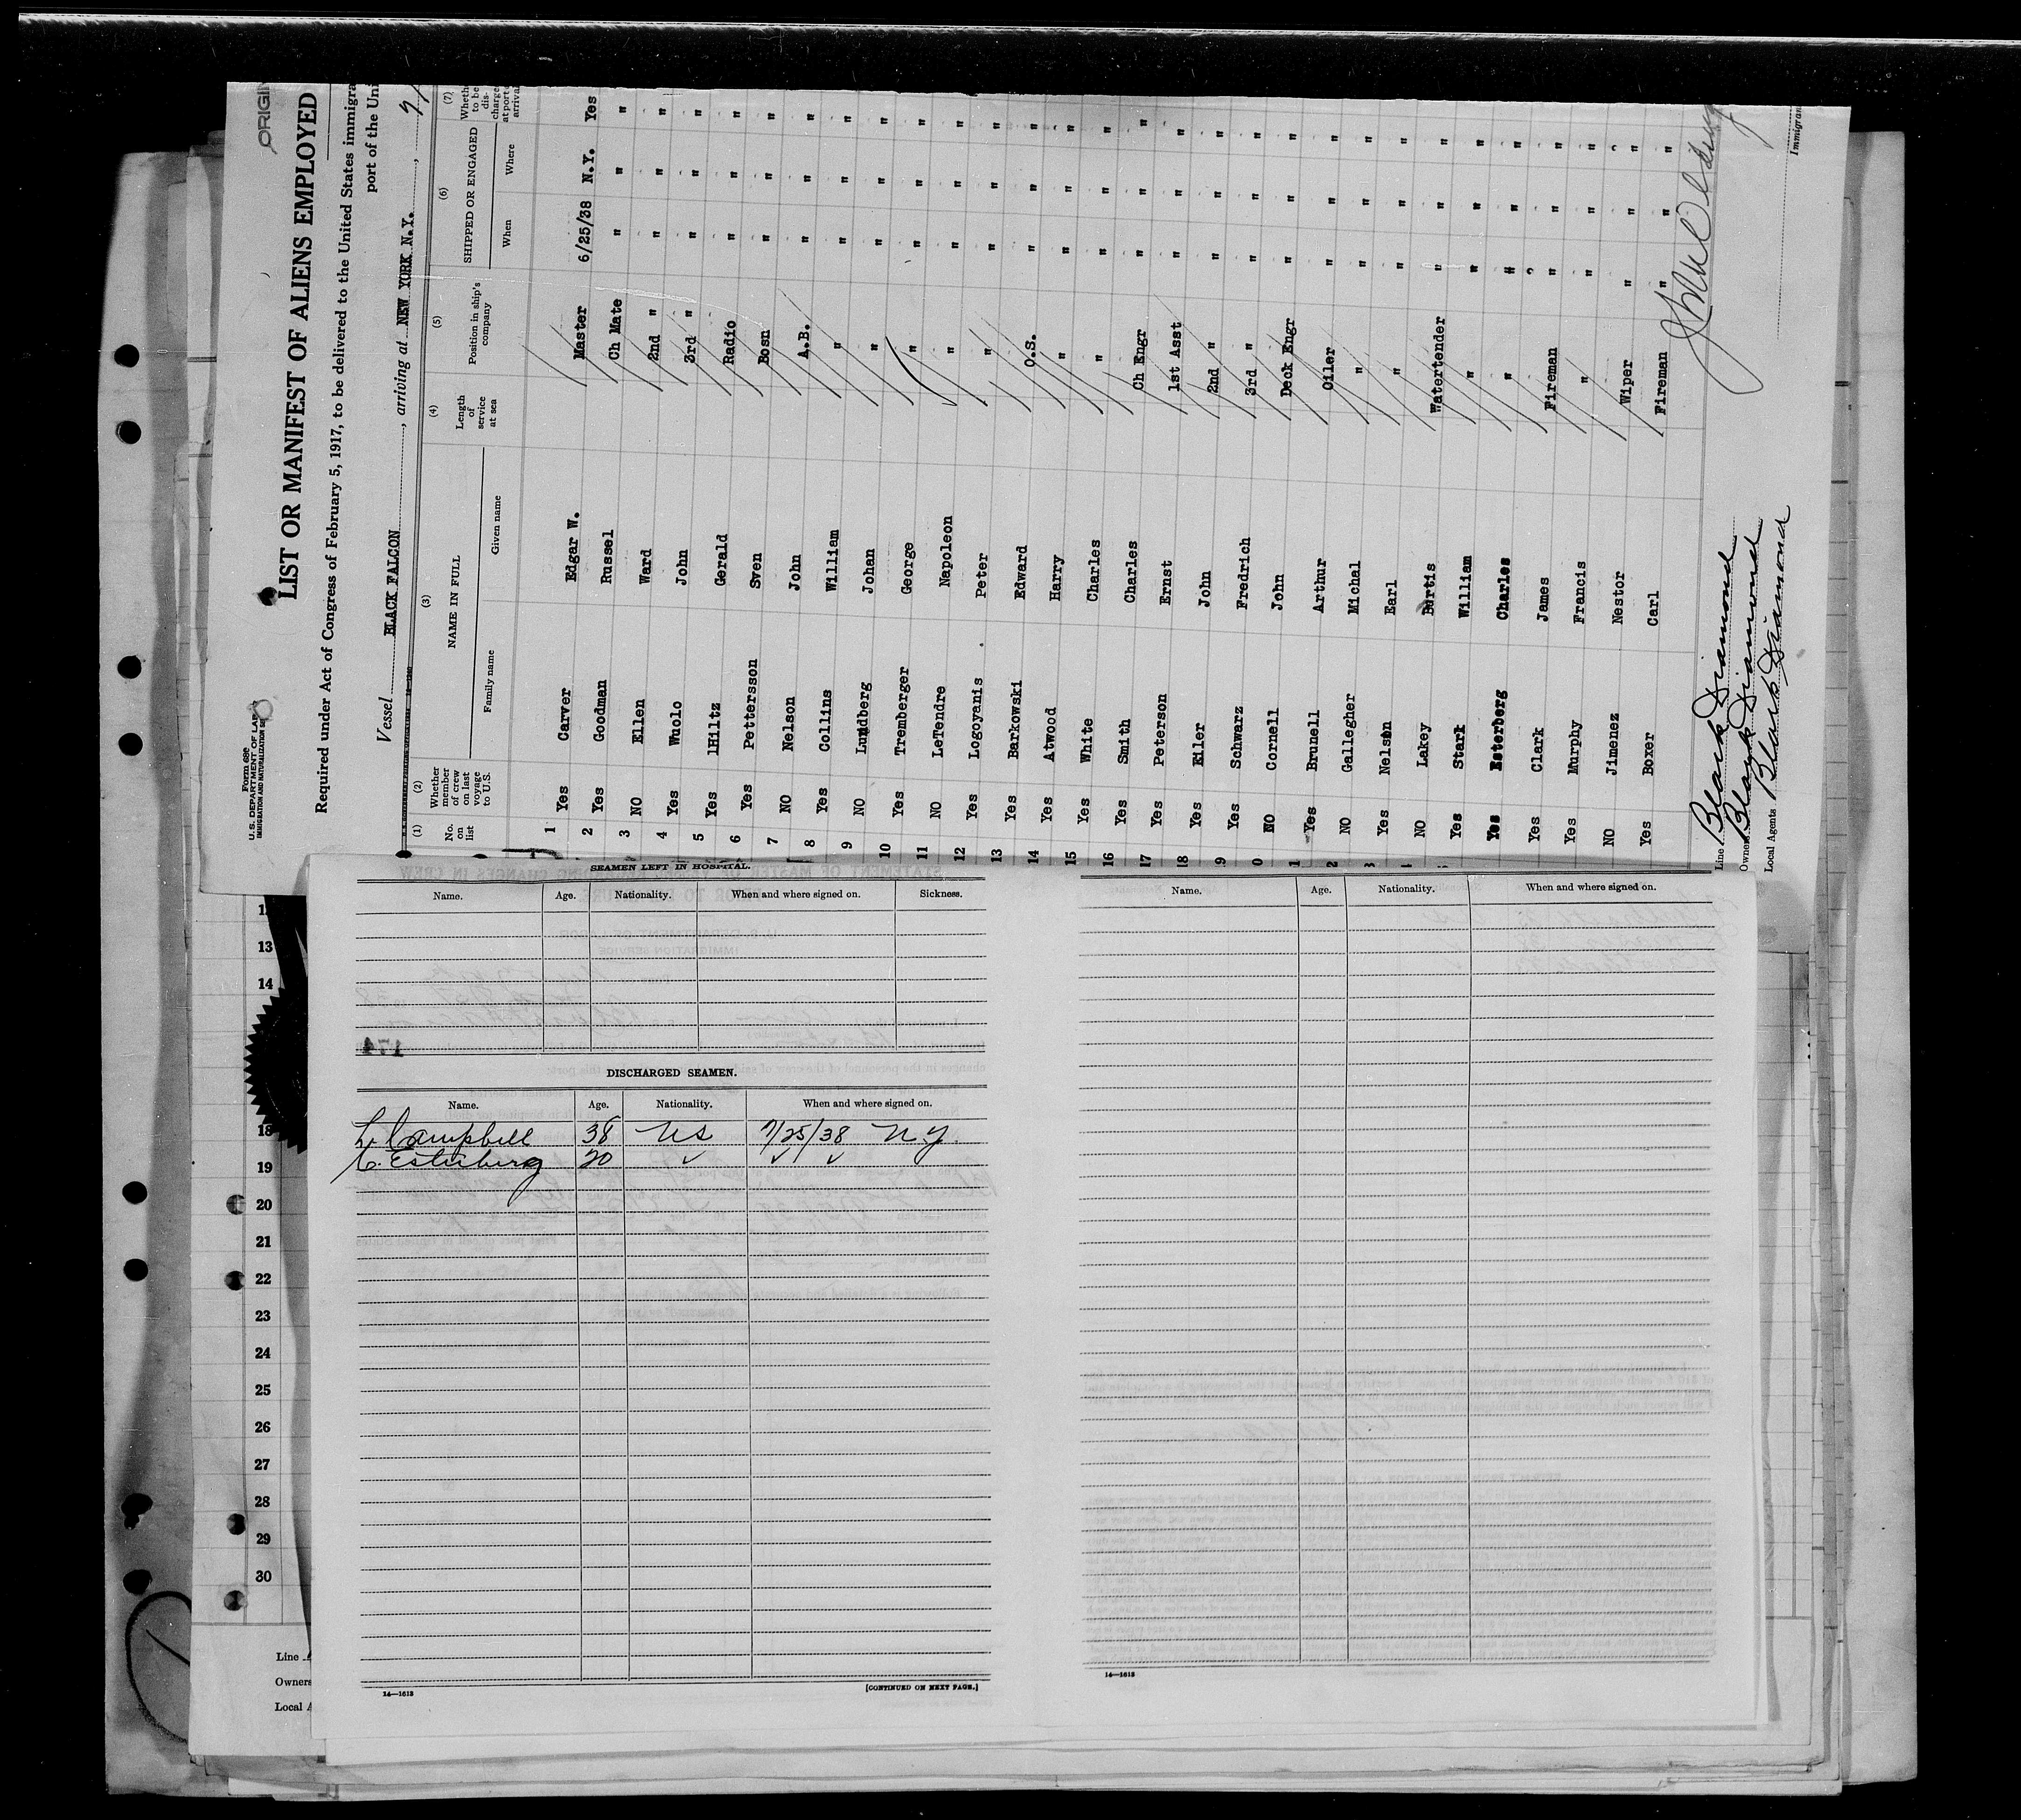 ORIGIN
Form 689
U.S. DEPARTMENT OF LABOR
IMMIGRATION AND NATURALIZATION SE
LIST OR MANIFEST OF ALIENS EMPLOYED
Required under Act of Congress of February 5, 1917, to be delivered to the United States immigra
port of the Uni
Vessel BLACK FALCON, arriving at NEW YORK N.Y.,
(1) (2) (3) (4) (5) (6) (7)
No. on list Whether member of crew on last voyage to U.S. NAME IN FULL Length of service at sea Position in ship's company SHIPPED OR ENGAGED Wheth to be dis- charged at port of arrival
Family name Given name When Where
1 Yes Carver Edgar W. Master 6/25/38 N.Y. Yes
2 Yes Goodman Russel Ch Mate " " "
3 NO Ellen Ward 2nd " " " "
4 Yes Wuolo John 3rd " " " "
5 Yes lHiltz Gerald Radio " " "
6 Yes Pettersson Sven Bosn " " "
7 NO Nelson John A.B. " " "
8 Yes Collins William " " " "
9 NO Lundberg Johan " " " "
10 Yes Tremberger George " " " "
11 NO LeTendre Napoleon " " " "
12 Yes Logoyanis Peter " " " "
13 Yes Barkowski Edward O.S. " " "
14 Yes Atwood Harry " " " "
15 Yes White Charles " " " "
16 Yes Smith Charles Ch Engr " " "
17 Yes Peterson Ernst 1st Asst " " "
18 Yes Eiler John 2nd " " " "
19 Yes Schwarz Fredrich 3rd " " " "
0 NO Cornell John Deck Engr " " "
1 Yes Brunell Arthur Oiler " " "
2 NO Gallegher Michal " " " "
3 Yes Nelson Earl " " " "
NO Lakey Bertis Watertender " " "
Yes Stark William " " " "
Yes Esterberg Charles " " " "
Yes Clark James Fireman " " "
Yes Murphy Francis " " " "
NO Jimenez Nestor Wiper " " "
Yes Boxer Carl Fireman " " "
Line Black Diamond
Owner Black Diamond
Local Agents Black Diamond
Immigran
SEAMEN LEFT IN HOSPITAL.
Name. Age. Nationality. When and where signed on. Sickness.
DISCHARGED SEAMEN.
Name. Age. Nationality. When and where signed on.
L. Campbell 38 US 7/25/38 N.Y.
C. Esterberg 20 ✓ ✓ ✓
14—1613
[CONTINUED ON NEXT PAGE.]
Name. Age. Nationality. When and where signed on.
14—1613
13
14
18
19
20
21
22
23
24
25
26
27
28
29
30
Line
Owners
Local A